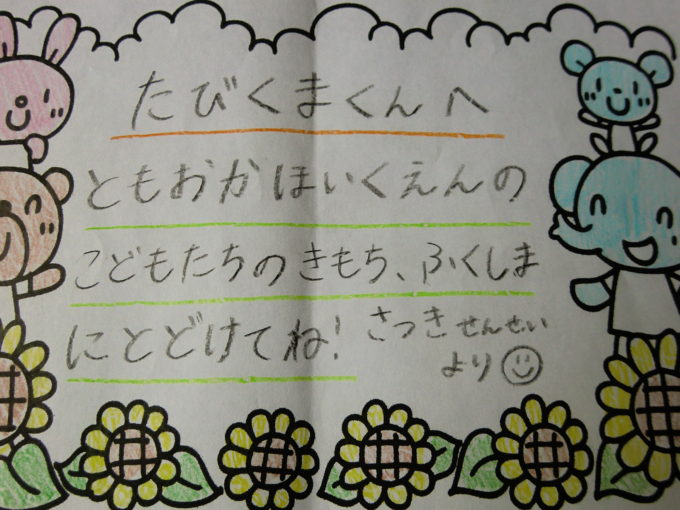 たびくまくんへ
ともおかほいくえんの
こどもたちのきもち、ふくしま
にとどけてね！さつきせんせい
より